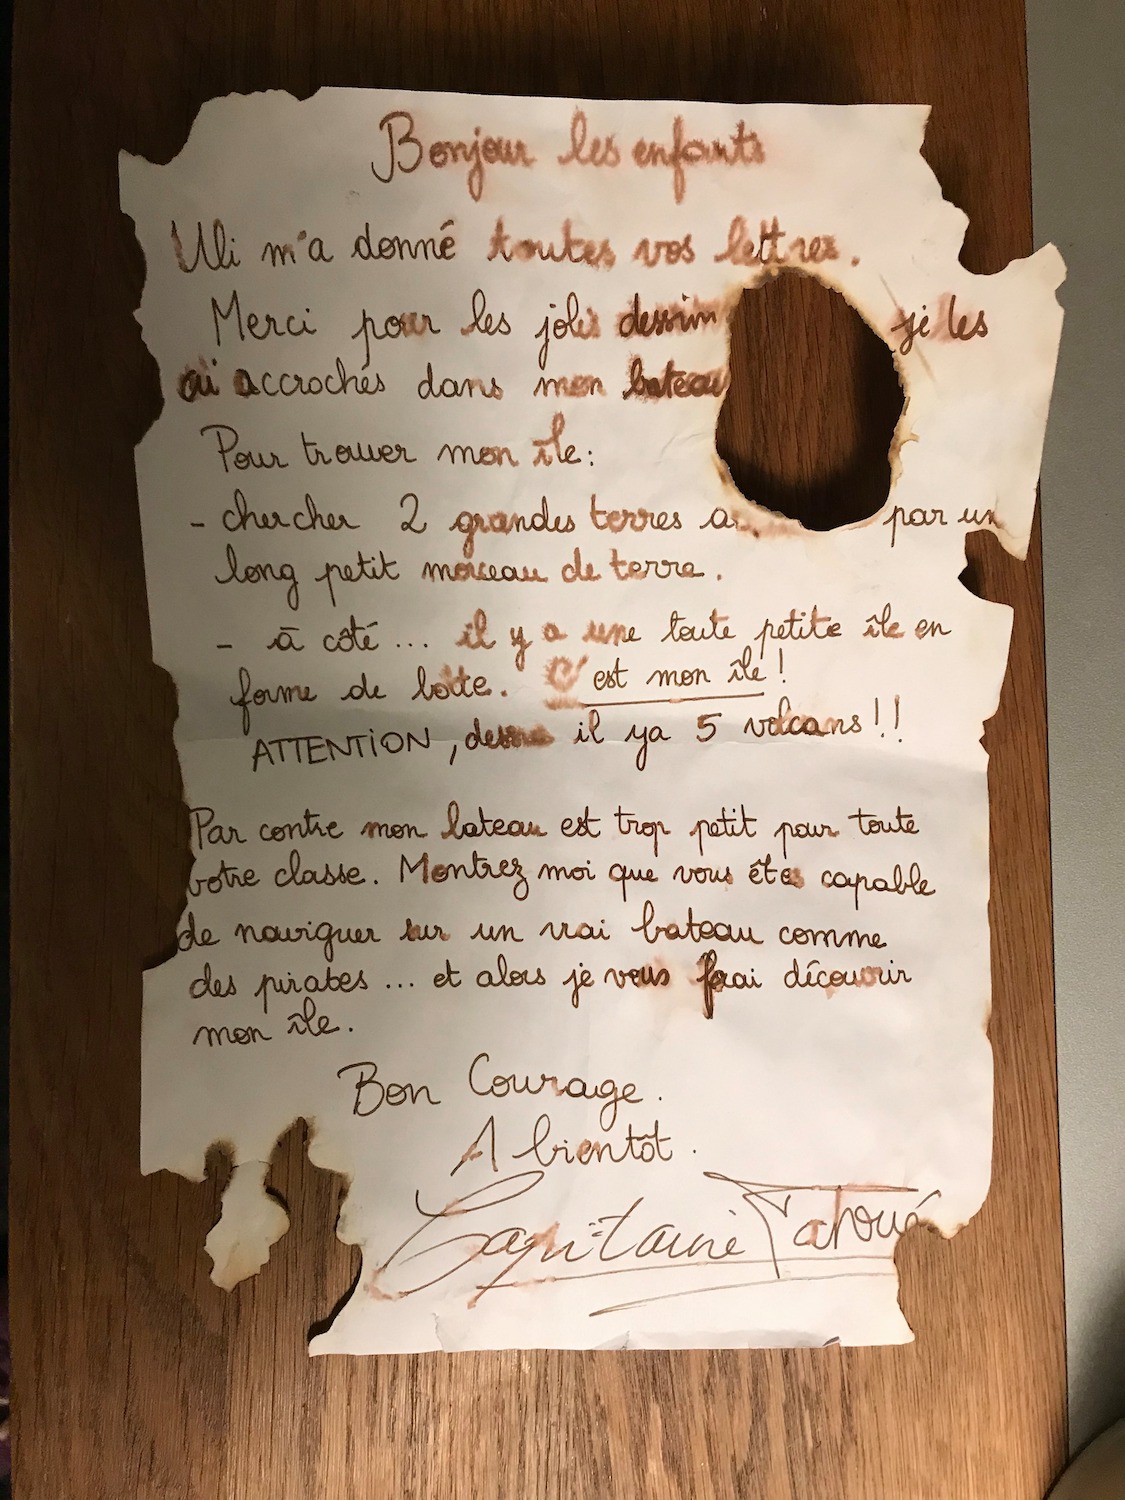 Bonjour les enfants
Uli m'a donné toutes vos lettres.
Merci pour les jolis dessin je les
ai accrochés dans mon bateau
Pour trouver mon île:
- chercher 2 grandes terres a par un
long petit morceau de terre.
- à côté ... il y a une toute petite île en
forme de botte. C'est mon île!
ATTENTION, dessus il ya 5 volcans!!
Par contre mon bateau est trop petit pour toute
votre classe. Montrez moi que vous êtes capable
de naviguer sur un vrai bateau comme
des pirates ... et alors je vous ferai découvrir
mon île.
Bon Courage.
A bientôt.
Capitaine Tatoué